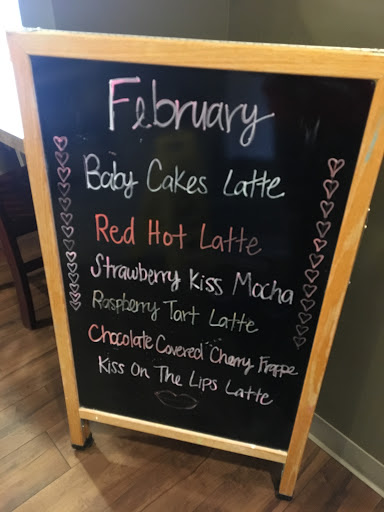 February
Baby Cakes Latte
Red Hot Latte
Strawberry Kiss Mocha
Raspberry Tart Latte
Chocolate Covered Cherry Frappe
Kiss On The Lips Latte